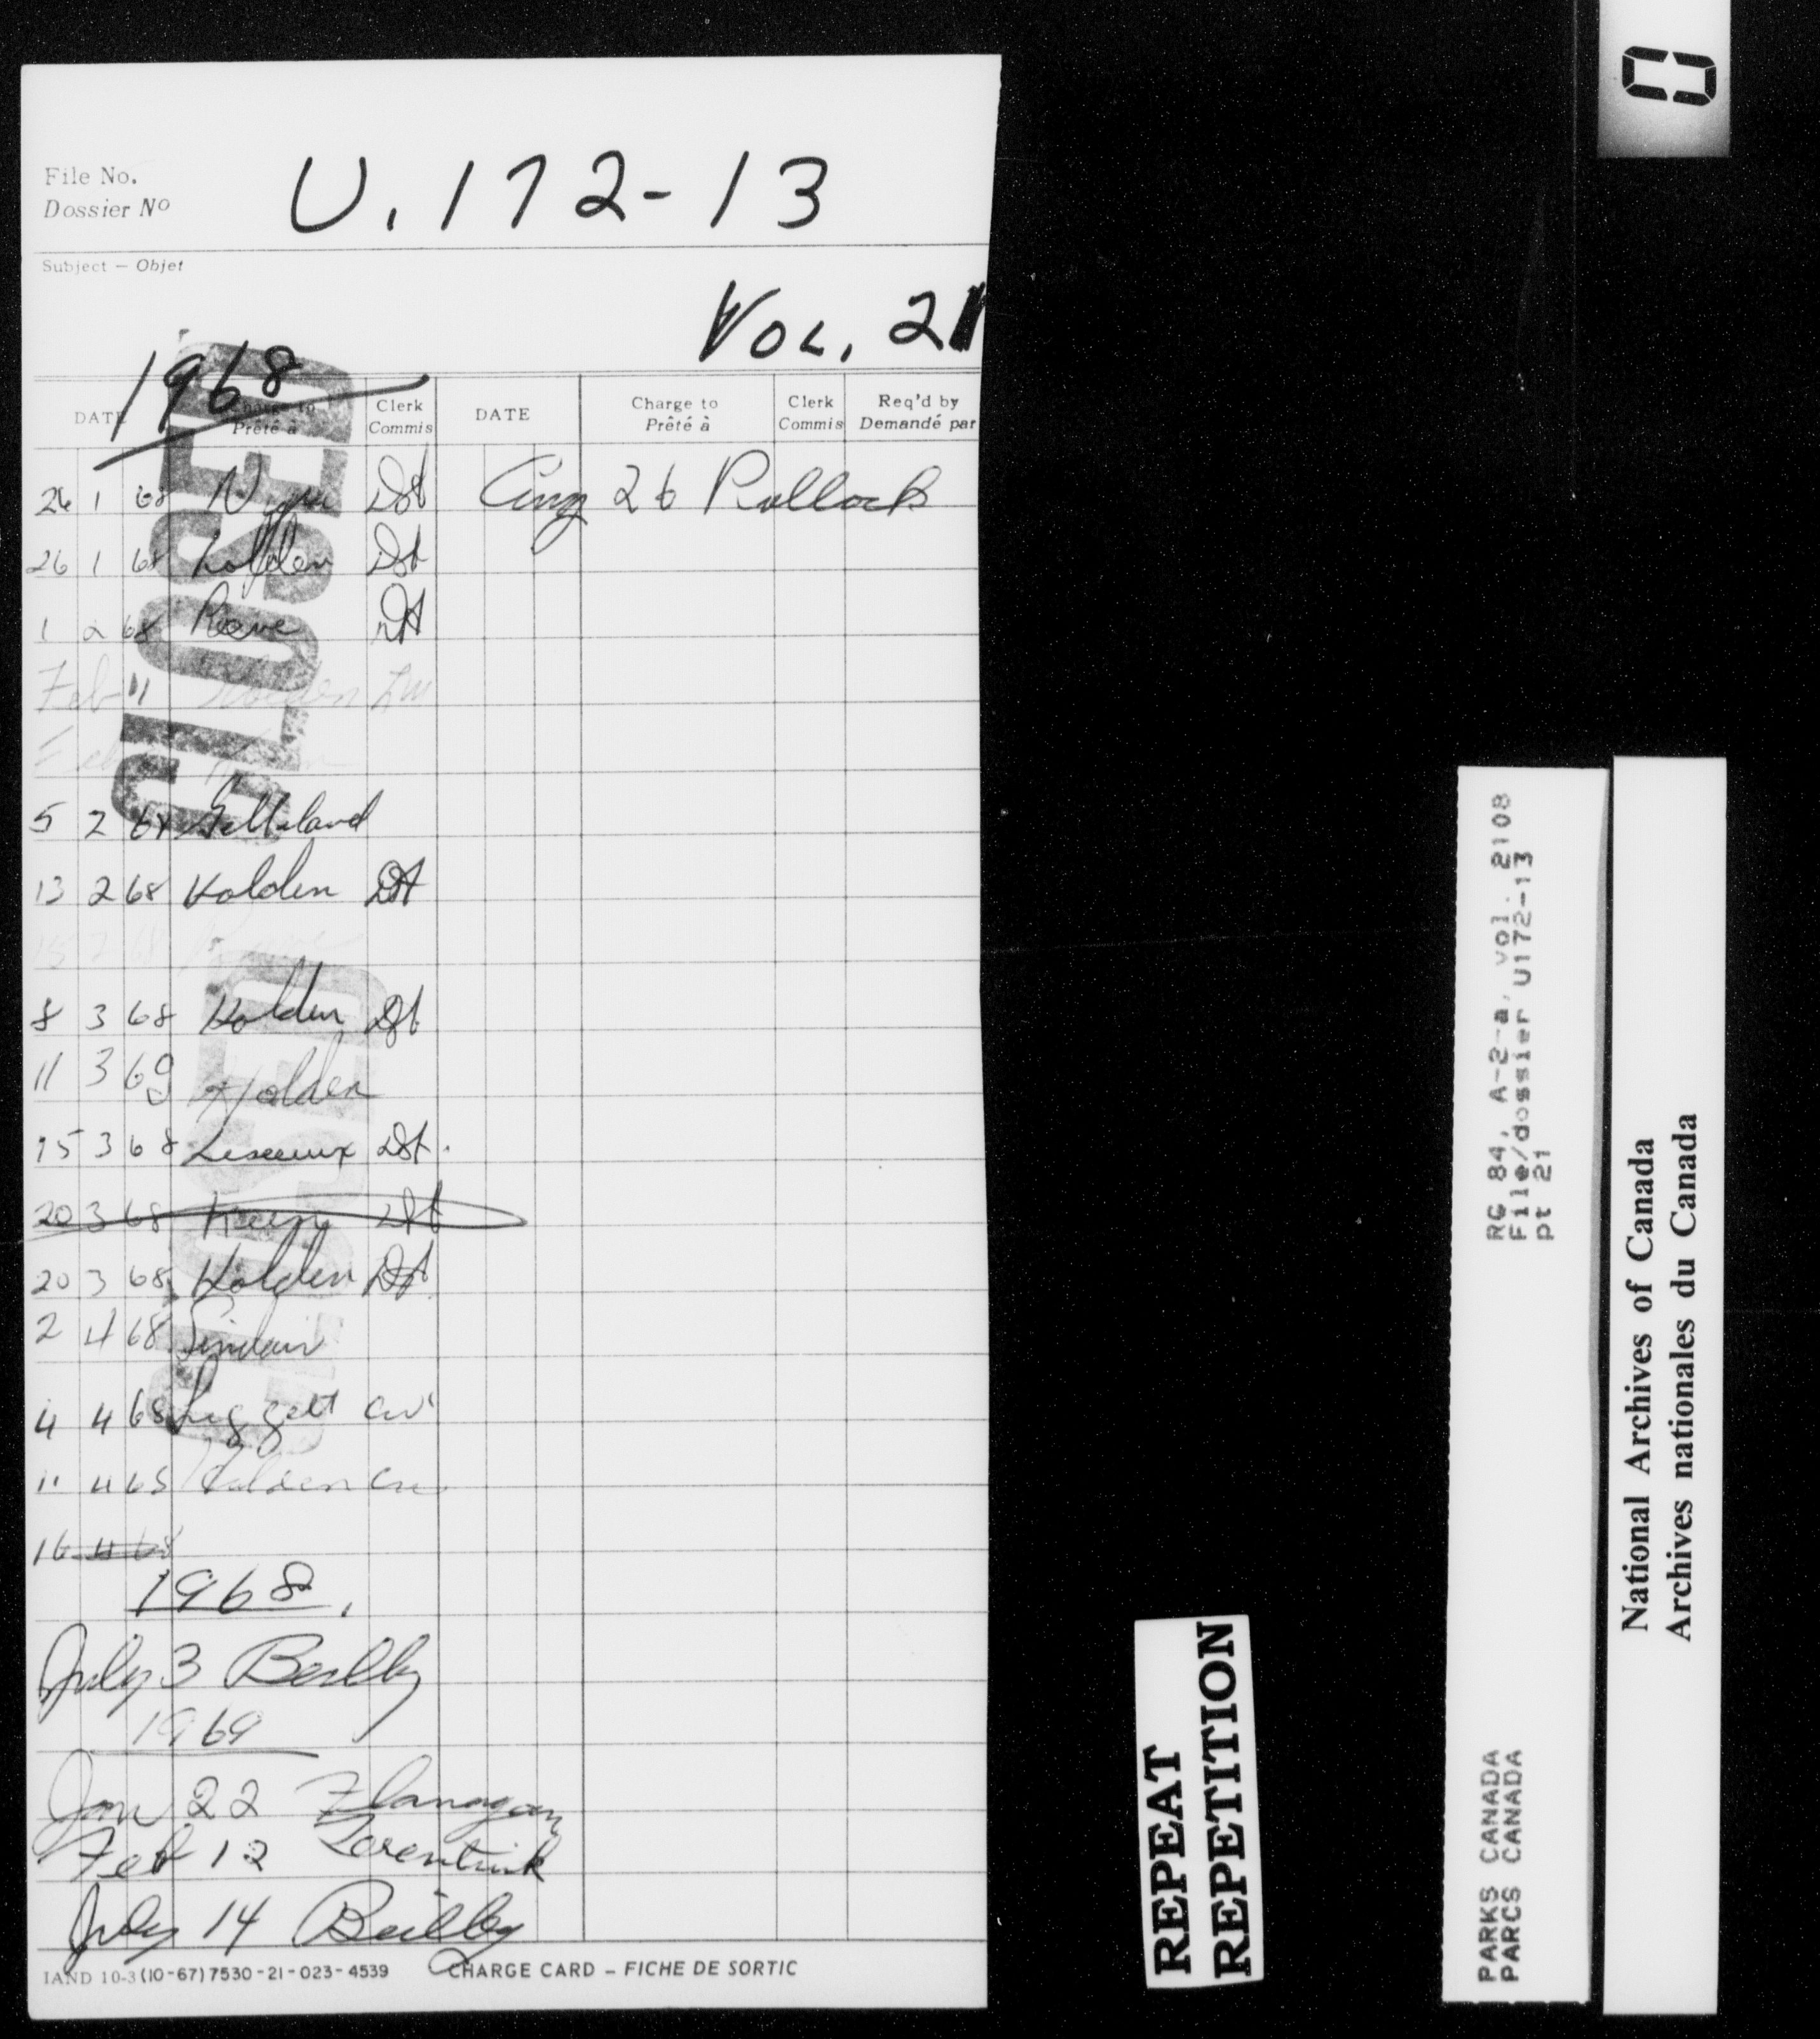 File No.
Dossier No
U.172-13
Subject – Objet
VOL. 21
1968
CLOSED
DATE Charge to Prêté à Clerk Commis DATE Charge to Prêté à Clerk Commis Req'd by Demandé par
26 1 68 Dst Aug 26 Pollock
26 1 68 Holden Dst
1 2 68 Reeve Dst
Feb 11 Holden
5 2 68
13 2 68 Holden Dst
15 2 68
8 3 68 Holden Dst
11 3 69 Holden
15 3 68 Dst.
20 3 68 Dst
20 3 68 Holden Dst
2 4 68 Sinclair
4 4 68 Leggett cw
11 4 68 Holden cw
16 4 68
CLOSED
1968.
July 3 Beilby
1969
Jan 22 Flanagan
Feb 12
July 14 Beilby
IAND 10-3 (10-67) 7530-21-023-4539 CHARGE CARD – FICHE DE SORTIC
REPEAT
REPETITION
RG 84, A-2-a, vol. 2108
File/dossier U172-13
pt 21
PARKS CANADA
PARCS CANADA
National Archives of Canada
Archives nationales du Canada